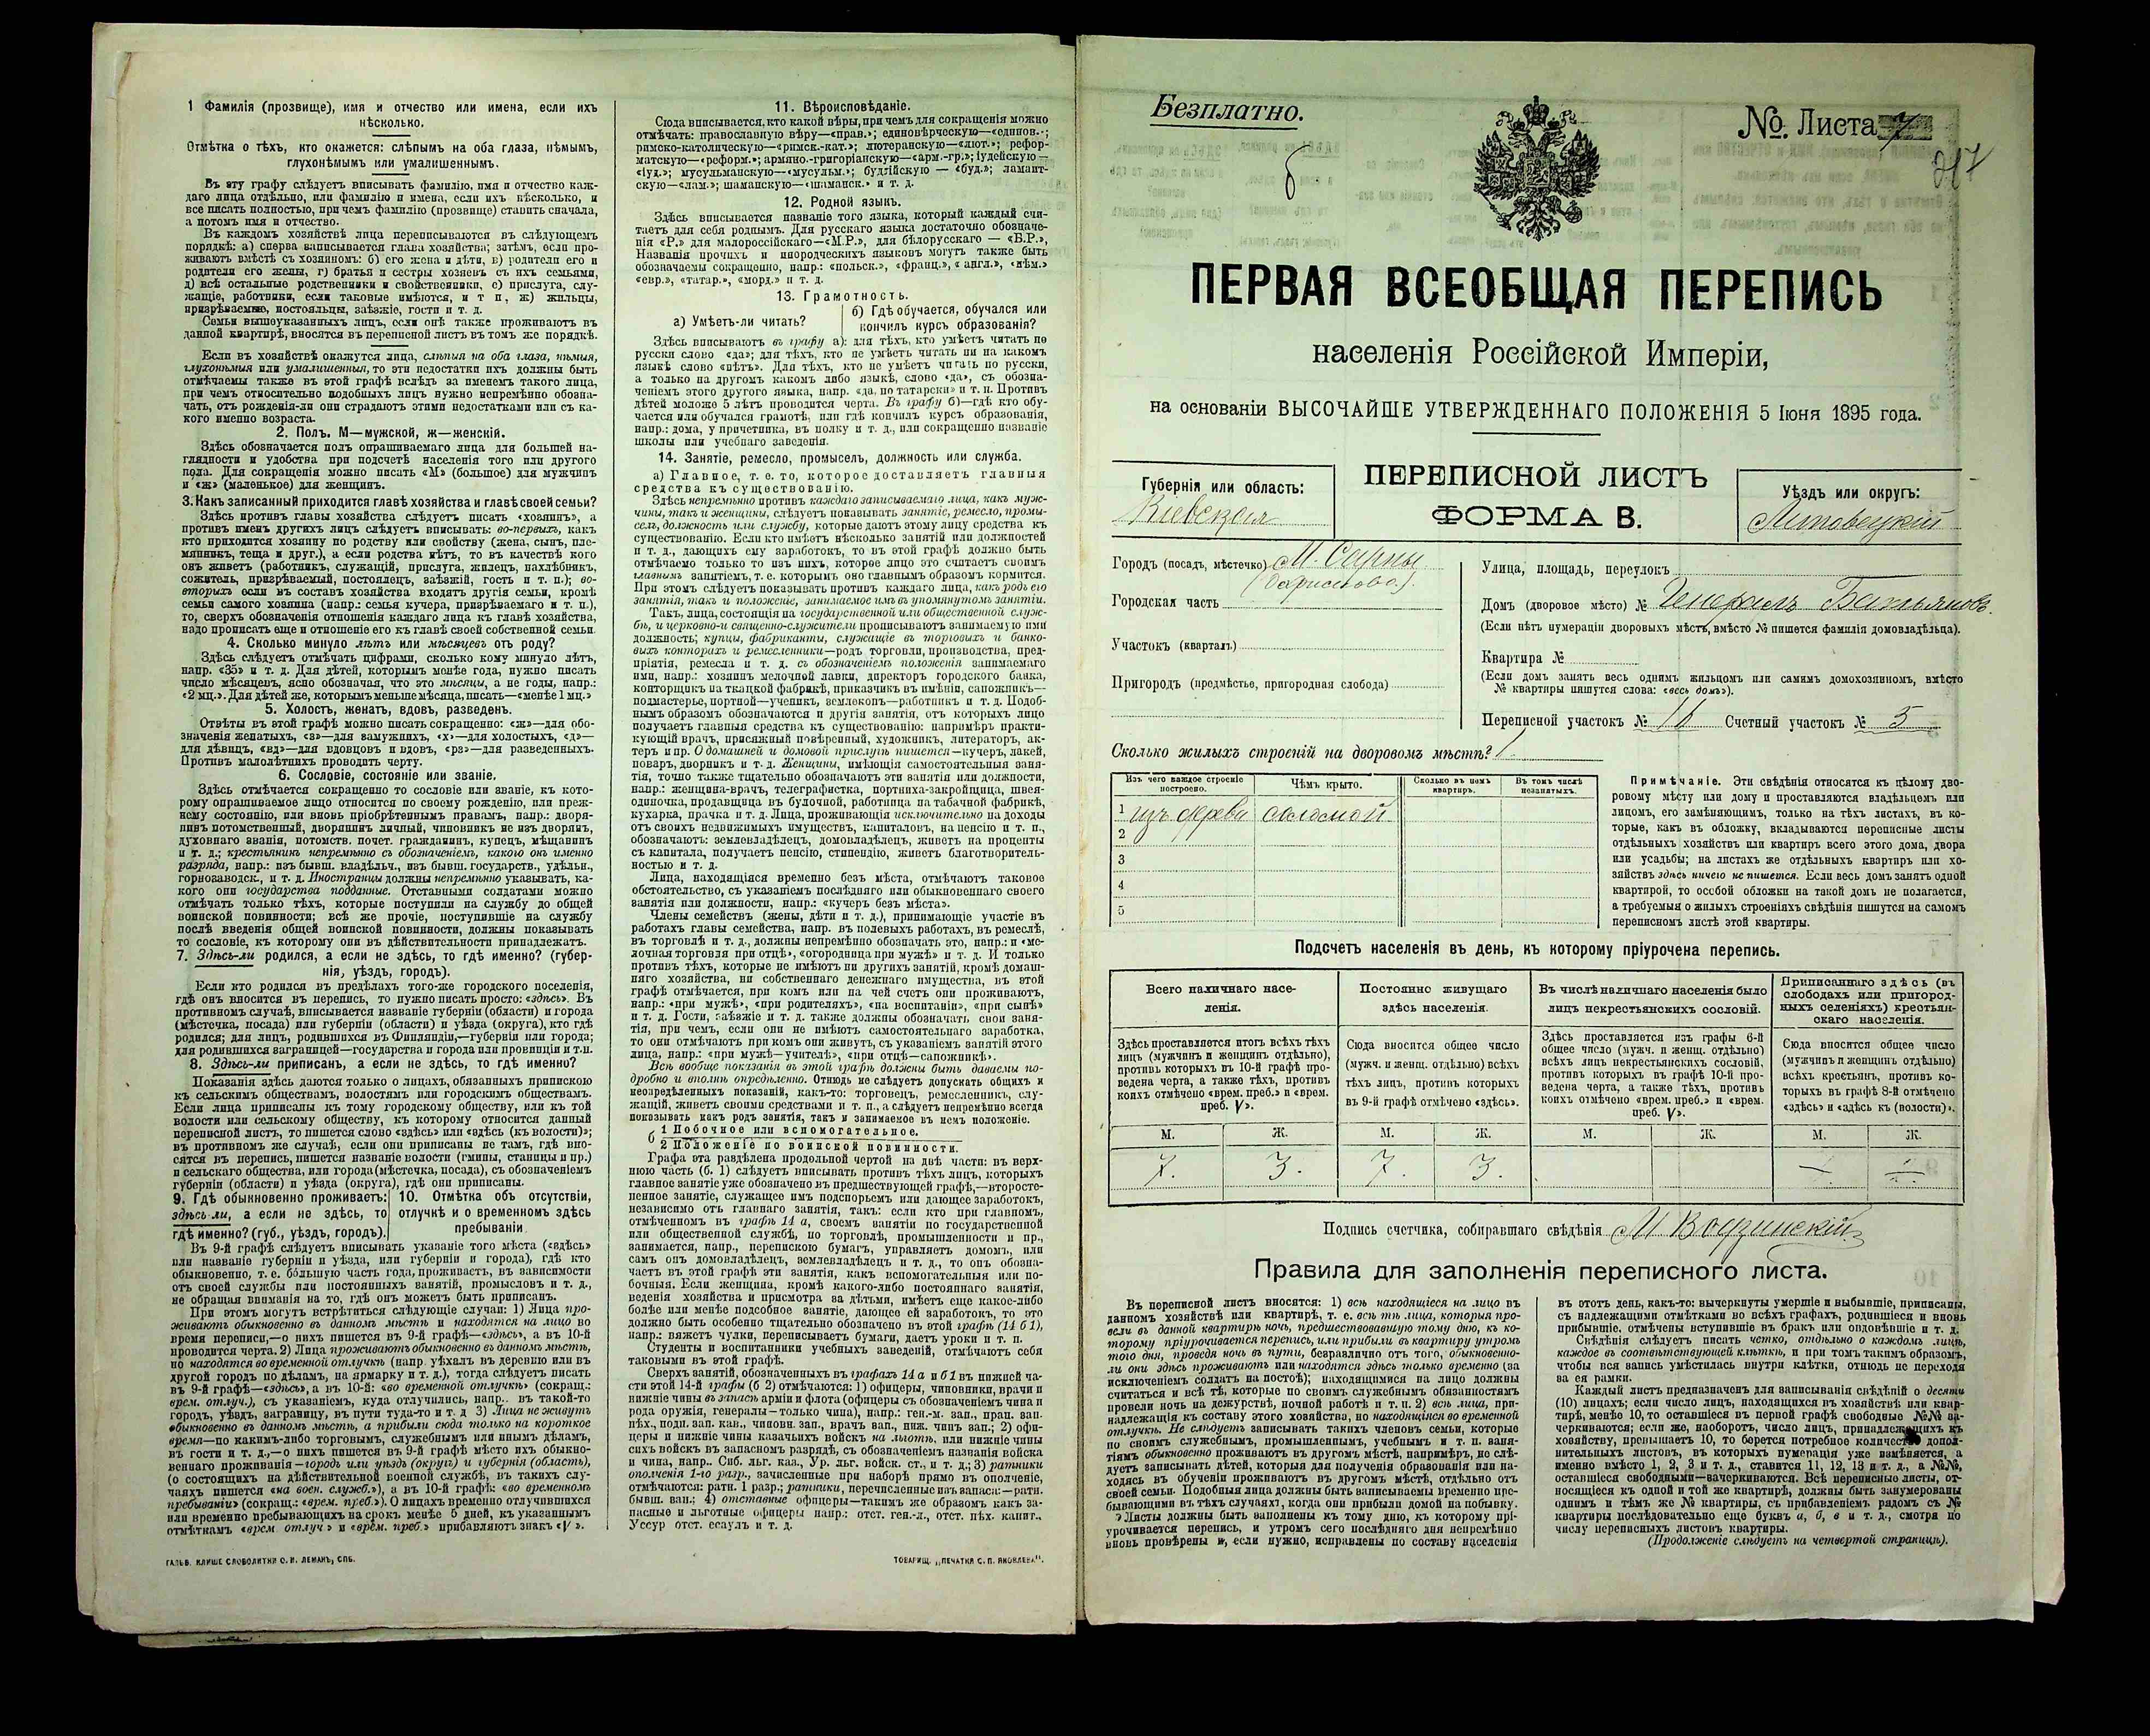 1 Фамилія (прозвище), имя и отчество или имена, если ихъ
нѣсколько.
Отмѣтка о тѣхъ, кто окажется: слѣпымъ на оба глаза, нѣмымъ,
глухонѣмымъ или умалишеннымъ.
Въ эту графу слѣдуетъ вписывать фамилію, имя и отчество каж-
даго лица отдѣльно, или фамилію и имена, если ихъ нѣсколько, и
все писать полностью, при чемъ фамилію (прозвище) ставить сначала,
а потомъ имя и отчество.
Въ каждомъ хозяйствѣ лица переписываются въ слѣдующемъ
порядкѣ: а) сперва записывается глава хозяйства; затѣмъ, если про-
живаютъ вмѣстѣ съ хозяиномъ: б) его жена и дѣти, в) родители его и
родители его жены, г) братья и сестры хозяевъ съ ихъ семьями,
д) всѣ остальные родственники и свойственники, е) прислуга, слу-
жащіе, работники, если таковые имѣются, и т п, ж) жильцы,
призрѣваемые, постояльцы, заѣзжіе, гости и т. д.
Семьи вышеуказанныхъ лицъ, если онѣ также проживаютъ въ
данной квартирѣ, вносятся въ переписной листъ въ томъ же порядкѣ.
Если въ хозяйствѣ окажутся лица, слѣпыя на оба глаза, нѣмыя,
глухонѣмыя или умалишенныя, то эти недостатки ихъ должны быть
отмѣчаемы также въ этой графѣ вслѣдъ за именемъ такого лица,
при чемъ относительно подобныхъ лицъ нужно непремѣнно обозна-
чать, отъ рожденія-ли они страдаютъ этими недостатками или съ ка-
кого именно возраста.
2. Полъ. М—мужской, ж—женскій.
Здѣсь обозначается полъ опрашиваемаго лица для большей на-
глядности и удобства при подсчетѣ населенія того или другого
пола. Для сокращенія можно писать «М» (большое) для мужчинъ
и «ж» (маленькое) для женщинъ.
3. Какъ записанный приходится главѣ хозяйства и главѣ своей семьи?
Здѣсь противъ главы хозяйства слѣдуетъ писать «хозяинъ», а
противъ именъ другихъ лицъ слѣдуетъ вписывать: во-первыхъ, какъ
кто приходится хозяину по родству или свойству (жена, сынъ, пле-
мянникъ, теща и друг.), а если родства нѣтъ, то въ качествѣ кого
онъ живетъ (работникъ, служащій, прислуга, жилецъ, нахлѣбникъ,
сожитель, призрѣваемый, постоялецъ, заѣзжій, гость и т. п.); во-
вторыхъ если въ составъ хозяйства входятъ другія семьи, кромѣ
семьи самого хозяина (напр.: семья кучера, призрѣваемаго и т. п.),
то, сверхъ обозначенія отношенія каждаго лица къ главѣ хозяйства,
надо прописать еще и отношеніе его къ главѣ своей собственной семьи.
4. Сколько минуло лѣтъ или мѣсяцевъ отъ роду?
Здѣсь слѣдуетъ отмѣчать цифрами, сколько кому минуло лѣтъ,
напр. «35» и т. д. Для дѣтей, которымъ менѣе года, нужно писать
число мѣсяцевъ, ясно обозначая, что это мѣсяцы, а не годы, напр.:
«2 мц.». Для дѣтей же, которымъ меньше мѣсяца, писать—«менѣе 1 мц.»
5. Холостъ, женатъ, вдовъ, разведенъ.
Отвѣты въ этой графѣ можно писать сокращенно: «ж»—для обо-
значенія женатыхъ, «з»—для замужнихъ, «х»—для холостыхъ, «д»—
для дѣвицъ, «вд»—для вдовцовъ и вдовъ, «рз»—для разведенныхъ.
Противъ малолѣтнихъ проводить черту.
6. Сословіе, состояніе или званіе.
Здѣсь отмѣчается сокращенно то сословіе или званіе, къ кото-
рому опрашиваемое лицо относится по своему рожденію, или преж-
нему состоянію, или вновь пріобрѣтеннымъ правамъ, напр.: дворя-
нинъ потомственный, дворянинъ личный, чиновникъ не изъ дворянъ,
духовнаго званія, потомств. почет. гражданинъ, купецъ, мѣщанинъ
и т. д.; крестьянинъ непремѣнно съ обозначеніемъ, какого онъ именно
разряда, напр.: изъ бывш. владѣльч., изъ бывш. государств., удѣльн.,
горнозаводск., и т. д. Иностранцы должны непремѣнно указывать, ка-
кого они государства подданные. Отставными солдатами можно
отмѣчать только тѣхъ, которые поступили на службу до общей
воинской повинности; всѣ же прочіе, поступившіе на службу
послѣ введенія общей воинской повинности, должны показывать
то сословіе, къ которому они въ дѣйствительности принадлежатъ.
7. Здѣсь-ли родился, а если не здѣсь, то гдѣ именно? (губер-
нія, уѣздъ, городъ).
Если кто родился въ предѣлахъ того-же городского поселенія,
гдѣ онъ вносится въ перепись, то нужно писать просто: «здѣсь». Въ
противномъ случаѣ, вписывается названіе губерніи (области) и города
(мѣстечка, посада) или губерніи (области) и уѣзда (округа), кто гдѣ
родился; для лицъ, родившихся въ Финляндіи,—губернія или города;
для родившихся заграницей—государства и города или провинціи и т.п.
8. Здѣсь-ли приписанъ, а если не здѣсь, то гдѣ именно?
Показанія здѣсь даются только о лицахъ, обязанныхъ припискою
къ сельскимъ обществамъ, волостямъ или городскимъ обществамъ.
Если лица приписаны къ тому городскому обществу, или къ той
волости или сельскому обществу, къ которому относится данный
переписной листъ, то пишется слово «здѣсь» или «здѣсь (къ волости)»;
въ противномъ же случаѣ, если они приписаны не тамъ, гдѣ вно-
сятся въ перепись, пишется названіе волости (гмины, станицы и пр.)
и сельскаго общества, или города (мѣстечка, посада), съ обозначеніемъ
губерніи (области) и уѣзда (округа), гдѣ они приписаны.
9. Гдѣ обыкновенно проживаетъ:
здѣсь ли, а если не здѣсь, то
гдѣ именно? (губ., уѣздъ, городъ).
10. Отмѣтка объ отсутствіи,
отлучкѣ и о временномъ здѣсь
пребываніи.
Въ 9-й графѣ слѣдуетъ вписывать указаніе того мѣста («здѣсь»
или названіе губерніи и уѣзда, или губерніи и города), гдѣ кто
обыкновенно, т. е. бо́льшую часть года, проживаетъ, въ зависимости
отъ своей службы или постоянныхъ занятій, промысловъ и т. д.,
не обращая вниманія на то, гдѣ онъ можетъ быть приписанъ.
При этомъ могутъ встрѣтиться слѣдующіе случаи: 1) Лица про-
живаютъ обыкновенно въ данномъ мѣстѣ и находятся на лицо во
время переписи,—о нихъ пишется въ 9-й графѣ—«здѣсь», а въ 10-й
проводится черта. 2) Лица проживаютъ обыкновенно въ данномъ мѣстѣ,
но находятся во временной отлучкѣ (напр. уѣхалъ въ деревню или въ
другой городъ по дѣламъ, на ярмарку и т. д.), тогда слѣдуетъ писать
въ 9-й графѣ—«здѣсь», а въ 10-й: «во временной отлучкѣ» (сокращ.:
врем. отлуч.), съ указаніемъ, куда отлучились, напр.. въ такой-то
городъ, уѣздъ, заграницу, въ пути туда-то и т. д 3) Лица не живутъ
обыкновенно въ данномъ мѣстѣ, а прибыли сюда только на короткое
время—по какимъ-либо торговымъ, служебнымъ или инымъ дѣламъ,
въ гости и т. д.,—о нихъ пишется въ 9-й графѣ мѣсто ихъ обыкно-
веннаго проживанія—городъ или уѣздъ (округъ) и губернія (область),
(о состоящихъ на дѣйствительной военной службѣ, въ такихъ слу-
чаяхъ пишется «на воен. служб.»), а въ 10-й графѣ: «во временномъ
пребываніи» (сокращ.: «врем. преб.»). О лицахъ временно отлучившихся
или временно пребывающихъ на срокъ менѣе 5 дней, къ указаннымъ
отмѣткамъ «врем. отлуч » и «врем. преб.» прибавляютъ знакъ «V ».
ГАЛЬВ. КЛИШЕ СЛОВОЛИТНИ О. И. ЛЕМАНЪ, СПБ.
11. Вѣроисповѣданіе.
Сюда вписывается, кто какой вѣры, при чемъ для сокращенія можно
отмѣчать: православную вѣру—«прав.»; единовѣрческую—«единов.»;
римско-католическую—«римск.-кат.»; лютеранскую—«лют.»; рефор-
матскую—«реформ.»; армяно.-григоріанскую—«арм.-гр.»; іудейскую—
«іуд.»; мусульманскую—«мусульм.»; буддійскую — «буд.»; ламаит-
скую—«лам.»; шаманскую—«шаманск.» и т. д.
12. Родной языкъ.
Здѣсь вписывается названіе того языка, который каждый счи-
таетъ для себя роднымъ. Для русскаго языка достаточно обозначе-
нія «Р.» для малороссійскаго—«М.Р.», для бѣлорусскаго — «Б.Р.»,
Названія прочихъ и инородческихъ языковъ могутъ также быть
обозначаемы сокращенно, напр.: «польск.», «франц.», « англ.», «нѣм.»
«евр.», «татар.», «морд.» и т. д.
13. Грамотность.
а) Умѣетъ-ли читать?
б) Гдѣ обучается, обучался или
кончилъ курсъ образованія?
Здѣсь вписываютъ въ графу а): для тѣхъ, кто умѣетъ читать по
русски слово «да»; для тѣхъ, кто не умѣетъ читать ни на какомъ
языкѣ слово «нѣтъ». Для тѣхъ, кто не умѣетъ читать по русски,
а только на другомъ какомъ либо языкѣ, слово «да», съ обозна-
ченіемъ этого другого языка, напр. «да, по татарски» и т. п. Противъ
дѣтей моложе 5 лѣтъ проводится черта. Въ графу б)—гдѣ кто обу-
чается или обучался грамотѣ, или гдѣ кончилъ курсъ образованія,
напр.: дома, у причетника, въ полку и т. д., или сокращенно названіе
школы или учебнаго заведенія.
14. Занятіе, ремесло, промыселъ, должность или служба.
а) Главное, т. е. то, которое доставляетъ главныя
средства къ существованію.
Здѣсь непремѣнно противъ каждаго записываемаго лица, какъ муж-
чины, такъ и женщины, слѣдуетъ показывать занятіе, ремесло, промы-
селъ, должность или службу, которые даютъ этому лицу средства къ
существованію. Если кто имѣетъ нѣсколько занятій или должностей
и т. д., дающихъ ему заработокъ, то въ этой графѣ должно быть
отмѣчаемо только то изъ нихъ, которое лицо это считаетъ своимъ
главнымъ занятіемъ, т. е. которымъ оно главнымъ образомъ кормится.
При этомъ слѣдуетъ показывать противъ каждаго лица, какъ родъ его
занятія, такъ и положеніе, занимаемое имъ въ упомянутомъ занятіи.
Такъ, лица, состоящія на государственной или общественной служ-
бѣ, и церковно-и священно-служители прописываютъ занимаемую ими
должность; купцы, фабриканты, служащіе въ торговыхъ и банко-
выхъ конторахъ и ремесленники—родъ торговли, производства, пред-
пріятія, ремесла и т. д. съ обозначеніемъ положенія занимаемаго
ими, напр.: хозяинъ мелочной лавки, директоръ городского банка,
конторщикъ на ткацкой фабрикѣ, приказчикъ въ имѣніи, сапожникъ—
подмастерье, портной—ученикъ, землекопъ—работникъ и т. д. Подоб-
нымъ образомъ обозначаются и другія занятія, отъ которыхъ лицо
получаетъ главныя средства къ существованію: напримѣръ практи-
кующій врачъ, присяжный повѣренный, художникъ, литераторъ, ак-
теръ и пр. О домашней и домовой прислугѣ пишется—кучеръ, лакей,
поваръ, дворникъ и т. д. Женщины, имѣющія самостоятельныя заня-
тія, точно также тщательно обозначаютъ эти занятія или должности,
напр.: женщина-врачъ, телеграфистка, портниха-закройщица, швея-
одиночка, продавщица въ булочной, работница на табачной фабрикѣ,
кухарка, прачка и т. д. Лица, проживающія исключительно на доходы
отъ своихъ недвижимыхъ имуществъ, капиталовъ, на пенсію и т. п.,
обозначаютъ: землевладѣлецъ, домовладѣлецъ, живетъ на проценты
съ капитала, получаетъ пенсію, стипендію, живетъ благотворитель-
ностью и т. д.
Лица, находящіяся временно безъ мѣста, отмѣчаютъ таковое
обстоятельство, съ указаніемъ послѣдняго или обыкновеннаго своего
занятія или должности, напр.: «кучеръ безъ мѣста».
Члены семействъ (жены, дѣти и т. д.), принимающіе участіе въ
работахъ главы семейства, напр. въ полевыхъ работахъ, въ ремеслѣ,
въ торговлѣ и т. д., должны непремѣнно обозначать это, напр.: и «ме-
лочная торговля при отцѣ», «огородница при мужѣ» и т. д. И только
противъ тѣхъ, которые не имѣютъ ни другихъ занятій, кромѣ домаш-
няго хозяйства, ни собственнаго денежнаго имущества, въ этой
графѣ отмѣчается, при комъ или на чей счетъ они проживаютъ,
напр.: «при мужѣ», «при родителяхъ», «на воспитаніи», «при сынѣ»
и т. д. Гости, заѣзжіе и т. д. также должны обозначать свои заня-
тія, при чемъ, если они не имѣютъ самостоятельнаго заработка,
то они отмѣчаютъ при комъ они живутъ, съ указаніемъ занятій этого
лица, напр.: «при мужѣ—учителѣ», «при отцѣ—сапожникѣ».
Всѣ вообще показанія въ этой графѣ должны быть даваемы по-
дробно и вполнѣ опредѣленно. Отнюдь не слѣдуетъ допускать общихъ и
неопредѣленныхъ показаній, какъ-то: торговецъ, ремесленникъ, слу-
жащій, живетъ своими средствами и т. п., а слѣдуетъ непремѣнно всегда
показывать какъ родъ занятія, такъ и занимаемое въ немъ положеніе.
б 1 Побочное или вспомогательное.
2 Положеніе по воинской повинности.
Графа эта раздѣлена продольной чертой на двѣ части: въ верх-
нюю часть (б. 1) слѣдуетъ вписывать противъ тѣхъ лицъ, которыхъ
главное занятіе уже обозначено въ предшествующей графѣ,—второсте-
пенное занятіе, служащее имъ подспорьемъ или дающее заработокъ,
независимо отъ главнаго занятія, такъ: если кто при главномъ,
отмѣченномъ въ графѣ 14 а, своемъ занятіи по государственной
или общественной службѣ, по торговлѣ, промышленности и пр.,
занимается, напр., перепискою бумагъ, управляетъ домомъ, или
самъ онъ домовладѣлецъ, землевладѣлецъ и т. д., то онъ обозна-
чаетъ въ этой графѣ эти занятія, какъ вспомогательныя или по-
бочныя. Если женщина, кромѣ какого-либо постояннаго занятія,
веденія хозяйства и присмотра за дѣтьми, имѣетъ еще какое-либо
болѣе или менѣе подсобное занятіе, дающее ей заработокъ, то это
должно быть особенно тщательно обозначено въ этой графѣ (14 б 1),
напр.: вяжетъ чулки, переписываетъ бумаги, даетъ уроки и т. п.
Студенты и воспитанники учебныхъ заведеній, отмѣчаютъ себя
таковыми въ этой графѣ.
Сверхъ занятій, обозначенныхъ въ графахъ 14 а и б 1 въ нижней ча-
сти этой 14-й графы (б 2) отмѣчаются: 1) офицеры, чиновники, врачи и
нижніе чины въ запасѣ арміи и флота (офицеры съ обозначеніемъ чина и
рода оружія, генералы—только чина), напр.: ген-м. зап., прап. зап.
пѣх., подп. зап. кав., чиновн. зап., врачъ зап., ниж. чинъ зап.; 2) офи-
церы и нижніе чины казачьихъ войскъ на льготѣ, или нижніе чины
сихъ войскъ въ запасномъ разрядѣ, съ обозначеніемъ названія войска
и чина, напр.. Сиб. льг. каз., Ур. льг. войск. ст., и т. д.; 3) ратники
ополченія 1-го разр., зачисленные при наборѣ прямо въ ополченіе,
отмѣчаются: ратн. 1 разр.; ратники, перечисленные изъ запаса:—ратн.
бывш. зап.; 4) отставные офицеры—такимъ же образомъ какъ за-
пасные и льготные офицеры напр.: отст. ген.-л., отст. пѣх. капит.,
Уссур отст. есаулъ и т. д.
ТОВАРИЩ. „ПЕЧАТНЯ С. П. ЯКОВЛЕВА".
Безплатно.
No. Листа 7
ПЕРВАЯ ВСЕОБЩАЯ ПЕРЕПИСЬ
населенія Россійской Имперіи,
на основаніи ВЫСОЧАЙШЕ УТВЕРЖДЕННАГО ПОЛОЖЕНІЯ 5 Іюня 1895 года.
ПЕРЕПИСНОЙ ЛИСТЪ
ФОРМА В.
Губернія или область:
Кіевская
Уѣздъ или округъ:
Липовецкій
Городъ (посадъ, мѣстечко) М. Сарны
Городская часть
Участокъ (кварталъ)
Пригородъ (предмѣстье, пригородная слобода)
Улица, площадь, переулокъ
Домъ (дворовое мѣсто) № Генералъ Батьяновъ.
(Если нѣтъ нумераціи дворовыхъ мѣстъ, вмѣсто № пишется фамилія домовладѣльца).
Квартира №
(Если домъ занятъ весь однимъ жильцомъ или самимъ домохозяиномъ, вмѣсто
№ квартиры пишутся слова: «весь домъ»).
Переписной участокъ № 16 Счетный участокъ № 5
Сколько жилыхъ строеній на дворовомъ мѣстѣ? 1.
Изъ чего каждое строеніе построено.
Чѣмъ крыто.
Сколько въ немъ квартиръ.
Въ томъ числѣ незанятыхъ.
1 изъ дерева соломой
2
3
4
5
Примѣчаніе. Эти свѣдѣнія относятся къ цѣлому дво-
ровому мѣсту или дому и проставляются владѣльцемъ или
лицомъ, его замѣняющимъ, только на тѣхъ листахъ, въ ко-
торые, какъ въ обложку, вкладываются переписные листы
отдѣльныхъ хозяйствъ или квартиръ всего этого дома, двора
или усадьбы; на листахъ же отдѣльныхъ квартиръ или хо-
зяйствъ здѣсь ничего не пишется. Если весь домъ занятъ одной
квартирой, то особой обложки на такой домъ не полагается,
а требуемыя о жилыхъ строеніяхъ свѣдѣнія пишутся на самомъ
переписномъ листѣ этой квартиры.
Подсчетъ населенія въ день, къ которому пріурочена перепись.
Всего наличнаго насе-
ленія.
Постоянно живущаго
здѣсь населенія.
Въ числѣ наличнаго населенія было
лицъ некрестьянскихъ сословій.
Приписаннаго здѣсь (въ
слободахъ или пригород-
ныхъ селеніяхъ) крестьян-
скаго населенія.
Здѣсь проставляется итогъ всѣхъ тѣхъ
лицъ (мужчинъ и женщинъ отдѣльно),
противъ которыхъ въ 10-й графѣ про-
ведена черта, а также тѣхъ, противъ
коихъ отмѣчено «врем. преб.» и «врем.
преб. V».
Сюда вносится общее число
(мужч. и женщ. отдѣльно) всѣхъ
тѣхъ лицъ, противъ которыхъ
въ 9-й графѣ отмѣчено «здѣсь».
Здѣсь проставляется изъ графы 6-й
общее число (мужч. и женщ. отдѣльно)
всѣхъ лицъ некрестьянскихъ сословій,
противъ которыхъ въ графѣ 10-й про-
ведена черта, а также тѣхъ, противъ
коихъ отмѣчено «врем. преб.» и «врем.
преб. V».
Сюда вносится общее число
(мужчинъ и женщинъ отдѣльно)
всѣхъ крестьянъ, противъ ко-
торыхъ въ графѣ 8-й отмѣчено
«здѣсь» и «здѣсь къ (волости)».
М. Ж. М. Ж. М. Ж. М. Ж.
7. 3. 7. 3.
Подпись счетчика, собиравшаго свѣдѣнія
Правила для заполненія переписного листа.
Въ переписной листъ вносятся: 1) всѣ находящіеся на лицо въ
данномъ хозяйствѣ или квартирѣ, т. е. всѣ тѣ лица, которыя про-
вели въ данной квартирѣ ночь, предшествовавшую тому дню, къ ко-
торому пріурочивается перепись, или прибыли въ квартиру утромъ
того дня, проведя ночь въ пути, безразлично отъ того, обыкновенно-
ли они здѣсь проживаютъ или находятся здѣсь только временно (за
исключеніемъ солдатъ на постоѣ); находящимися на лицо должны
считаться и всѣ тѣ, которые по своимъ служебнымъ обязанностямъ
провели ночь на дежурствѣ, ночной работѣ и т. п. 2) всѣ лица, при-
надлежащія къ составу этого хозяйства, но находящіяся во временной
отлучкѣ. Не слѣдуетъ записывать такихъ членовъ семьи, которые
по своимъ служебнымъ, промышленнымъ, учебнымъ и т. п. заня-
тіямъ обыкновенно проживаютъ въ другомъ мѣстѣ, напримѣръ, не слѣ-
дуетъ записывать дѣтей, которыя для полученія образованія или на-
ходясь въ обученіи проживаютъ въ другомъ мѣстѣ, отдѣльно отъ
своей семьи. Подобныя лица должны быть записываемы временно пре-
бывающими въ тѣхъ случаяхъ, когда они прибыли домой на побывку.
Листы должны быть заполнены къ тому дню, къ которому прі-
урочивается перепись, и утромъ сего послѣдняго дня непремѣнно
вновь провѣрены и, если нужно, исправлены по составу населенія
въ этотъ день, какъ-то: вычеркнуты умершіе и выбывшіе, приписаны,
съ надлежащими отмѣтками во всѣхъ графахъ, родившіеся и вновь
прибывшіе, отмѣчены вступившіе въ бракъ или овдовѣвшіе и т. д.
Свѣдѣнія слѣдуетъ писать четко, отдѣльно о каждомъ лицѣ,
каждое въ соотвѣтствующей клѣткѣ, и при томъ такимъ образомъ,
чтобы вся запись умѣстилась внутри клѣтки, отнюдь не переходя
за ея рамки.
Каждый листъ предназначенъ для записыванія свѣдѣній о десяти
(10) лицахъ; если число лицъ, находящихся въ хозяйствѣ или квар-
тирѣ, менѣе 10, то оставшіеся въ первой графѣ свободные №№ за-
черкиваются; если же, наоборотъ, число лицъ, принадлежащихъ къ
хозяйству, превышаетъ 10, то берется потребное количество допол-
нительныхъ листовъ, въ которыхъ нумерація уже измѣняется, а
именно вмѣсто 1, 2, 3 и т. д., ставится 11, 12, 13 и т. д., а №№,
оставшіеся свободными—зачеркиваются. Всѣ переписные листы, от-
носящіеся къ одной и той же квартирѣ, должны быть занумерованы
однимъ и тѣмъ же № квартиры, съ прибавленіемъ рядомъ съ №
квартиры послѣдовательно еще буквъ а, б, в и т. д., смотря по
числу переписныхъ листовъ квартиры.
(Продолженіе слѣдуетъ на четвертой страницѣ).